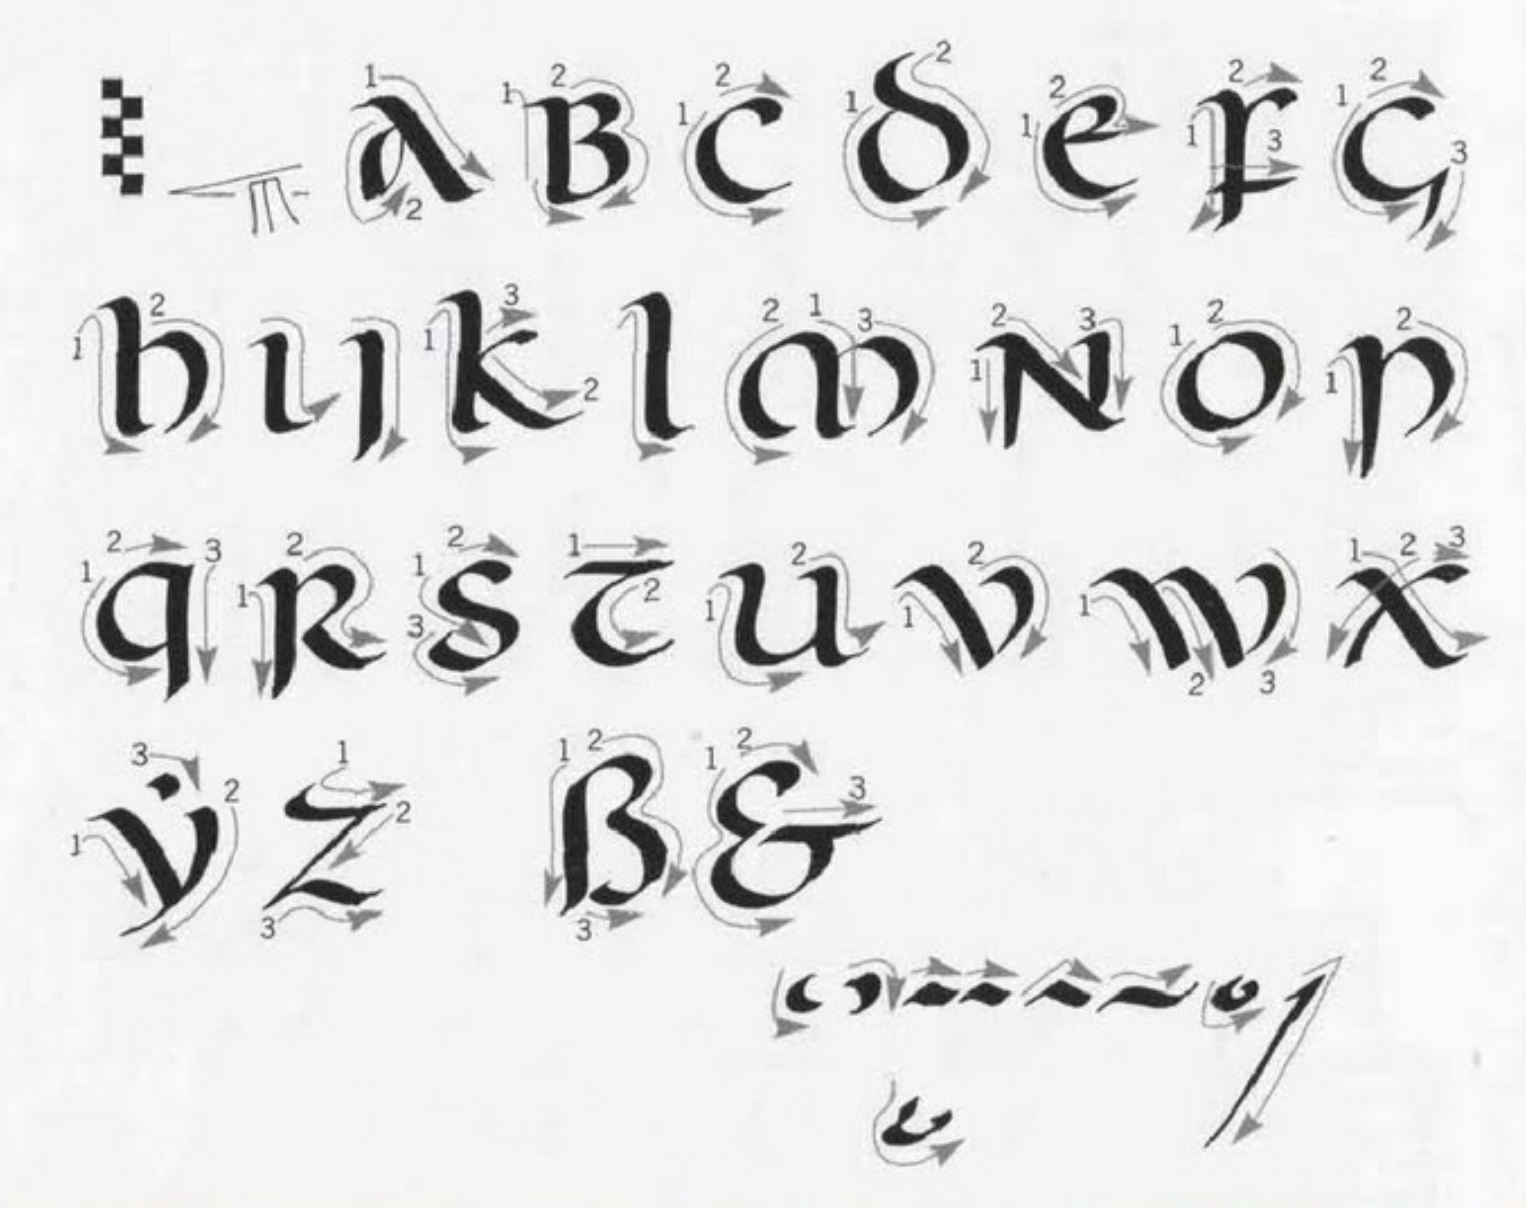 a B C d e F G
h i j k l m N o p
q R S T u v w x
ẏ Z ß &